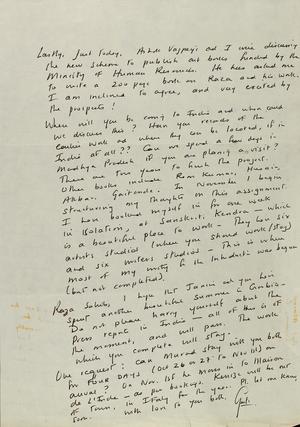 Lastly, just today, Ashok Vajpeyi and I were discussing
the new scheme to publish art books funded by the
Ministry of Human Resources. He has asked me
to write a 200 page book on Raza and his work.
I am inclined to agree, and very excited by
the prospects!
When will you be coming to India and when could
we discuss this? Have you records of the
earlier work and where they can be located, if in
India at all?? Can we spend a few days in
Madhya Pradesh if you are planning a visit?
There are two years to finish the project.
Other books include Ram Kumar, Husain,
Akbar, Gaitonde. In November I begin
structuring my thoughts on this assignment.
I have booked myself in for one week
in isolation, at Sanskriti Kendra – which
is a beautiful place to work – They have six
artists studios (where you should work/stay)
and six writers studios – This is where
most of my writing for the was begun
(but not completed).
Raza Sahib, I hope that Janine and you have
spent another beautiful summer in Gorbio –
Do not please worry yourself about the
Press reports in India – all of this is of
the moment, and will pass. The work
which you complete will stay.
One request: Can Murad stay with you both
for FOUR DAYS (Oct 26 or 27 to Nov 1st) on
arrival? On Nov. 1st he moves in to Maison
de L'Inde – as per bookings. will be out
of town, in Italy for the year. Pl. let me know,
with love to you both,